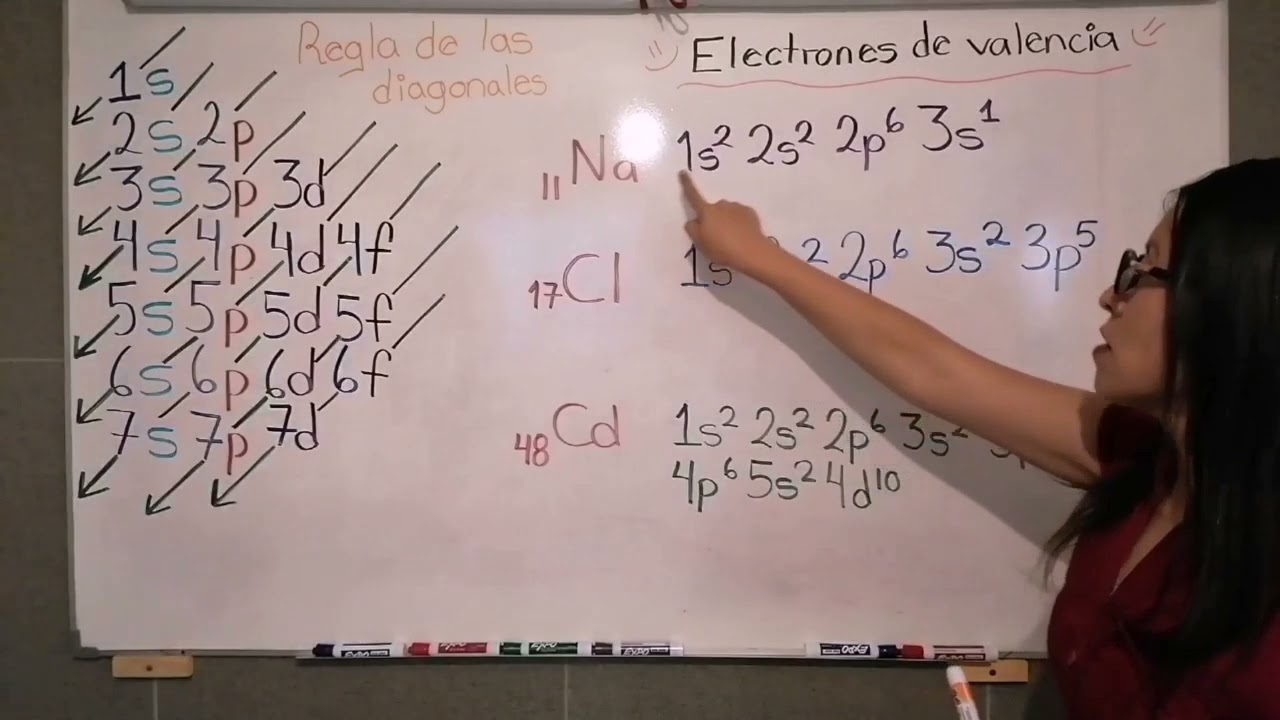 Regla de las
diagonales
1s
2s 2p
3s 3p 3d
4s 4p 4d 4f
5s 5p 5d 5f
6s 6p 6d 6f
7s 7p 7d
Electrones de valencia
₁₁Na 1s² 2s² 2p⁶ 3s¹
₁₇Cl 1s ² 2p⁶ 3s² 3p⁵
₄₈Cd 1s² 2s² 2p⁶ 3s²
4p⁶ 5s² 4d¹⁰
EXPO
EXPO
EXPO